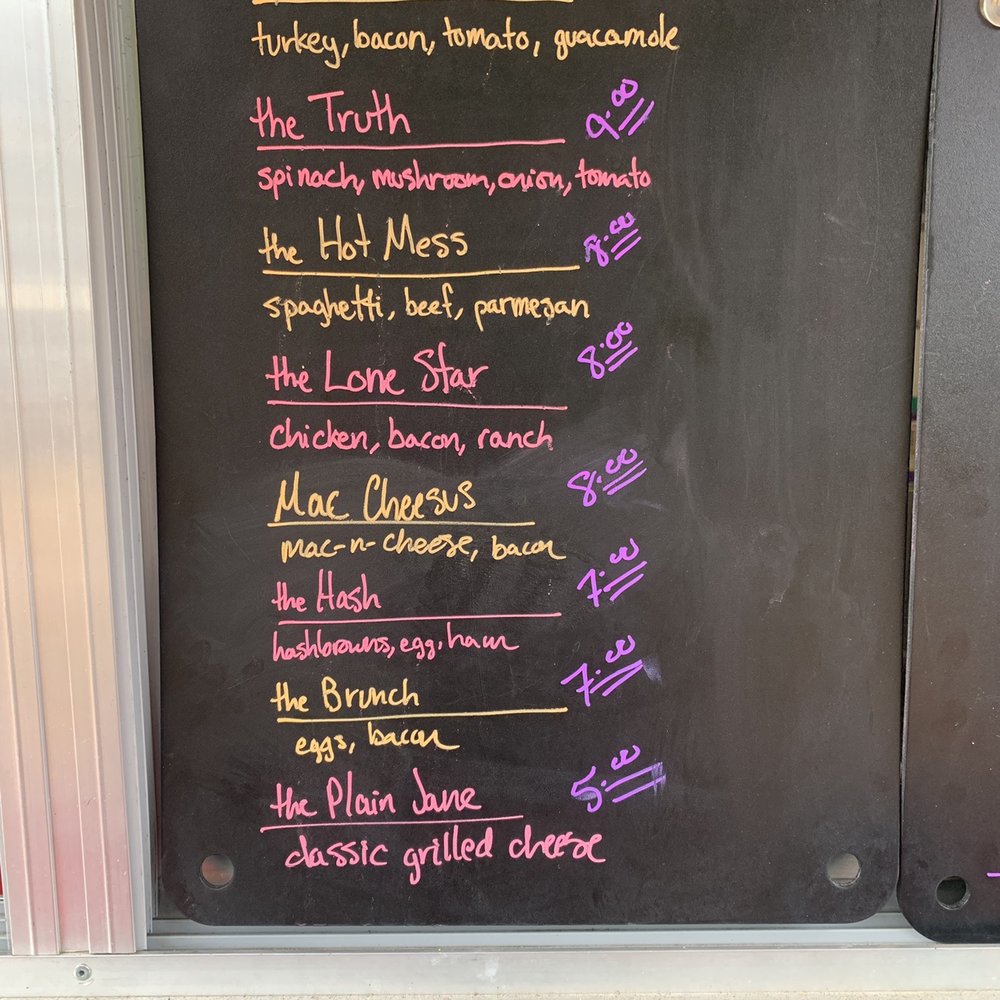 turkey, bacon, tomato, guacamole
the Truth 9.00
spinach, mushroom, onion, tomato
the Hot Mess 8.00
spaghetti, beef, parmesan
the Lone Star 8.00
chicken, bacon, ranch
Mac Cheesus 8.00
mac-n-cheese, bacon
the Hash 7.00
hashbrowns, egg, ham
the Brunch 7.00
eggs, bacon
the Plain Jane 5.00
classic grilled cheese